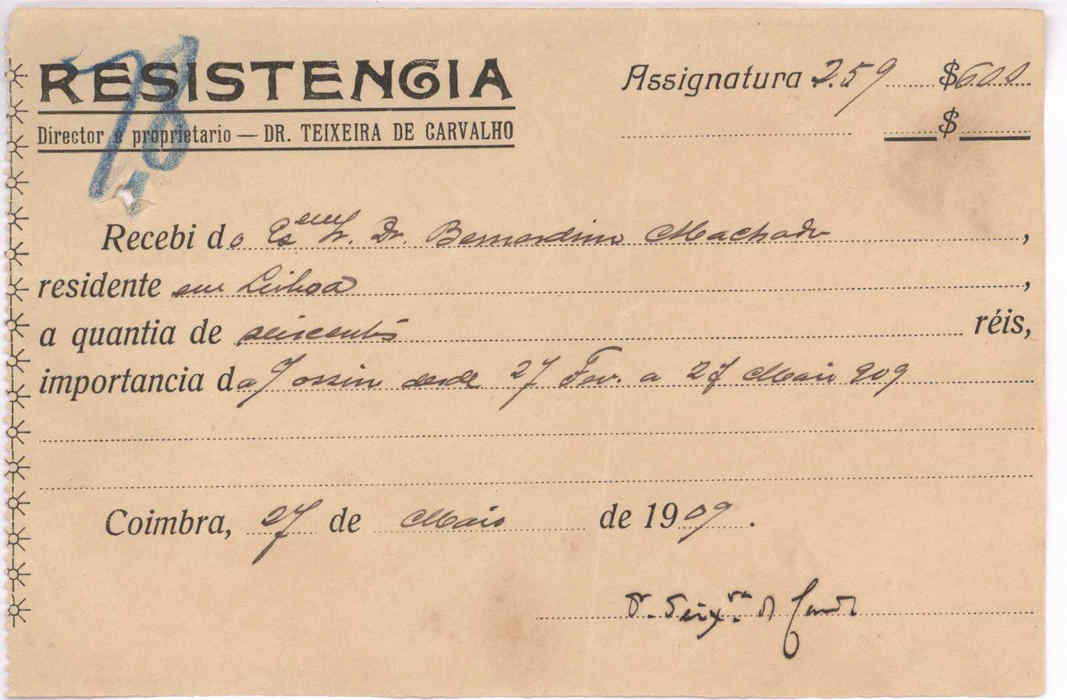 78
RESISTENCIA
Director e proprietario — DR. TEIXEIRA DE CARVALHO
Assignatura 259 $600
$
Recebi do Exmo Sr. Dr. Bernardino Machado,
residente em Lisboa,
a quantia de seiscentos réis,
importancia da desde 27 Fev. a 27 Maio 909
Coimbra, 27 de Maio de 1909.